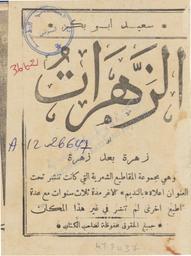 سعيد ابو بكر
36621
الزهرات
A-12-26647
زهرة بعد زهرة
وهي مجموعة المقاطيع الشعرية التي كانت تنشر تحت
العنوان اعلاه بالنديم الاغر مدة ثلاث سنوات مع عدة
مقاطيع اخرى لم تنشر في غير هذا المكان
جميع الحقوق محفوظة لصاحب الكتاب